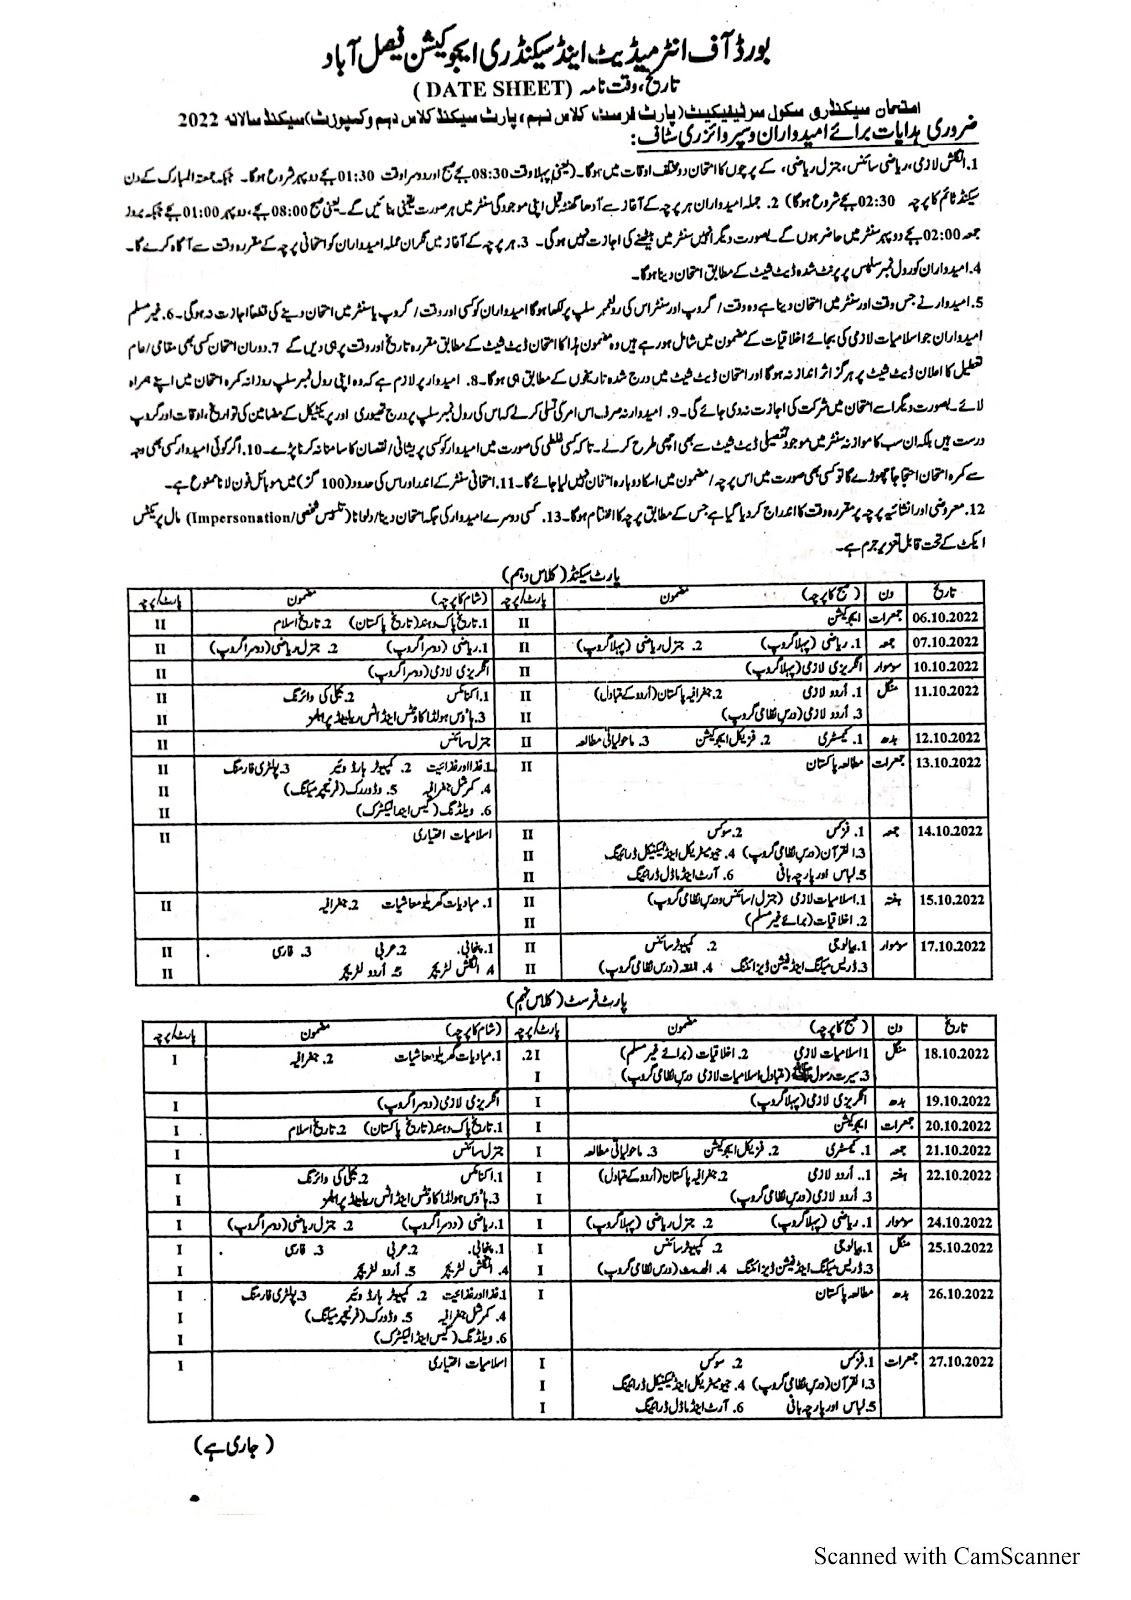 بورڈ آف انٹرمیڈیٹ اینڈ سیکنڈری ایجوکیشن فیصل آباد
تاریخ، وقت نامہ (DATE SHEET)
امتحان سیکنڈری سکول سرٹیفیکیٹ (پارٹ فرسٹ کلاس نہم، پارٹ سیکنڈ کلاس دہم و کمپوزٹ) سیکنڈ سالانہ 2022
ضروری ہدایات برائے امیدواران و سپروائزری سٹاف:
1. انگلش لازمی، ریاضی سائنس، جنرل ریاضی، کے پرچوں کا امتحان دو مختلف اوقات میں ہوگا۔ (یعنی پہلا وقت 08:30 بجے صبح اور دوسرا وقت 01:30 بجے دوپہر شروع ہوگا۔ جبکہ جمعۃ المبارک کے دن
سیکنڈ ٹائم کا پرچہ 02:30 بجے شروع ہوگا) 2. جملہ امیدواران ہر پرچہ کے آغاز سے آدھا گھنٹہ قبل اپنی موجودگی سنٹر میں ہر صورت یقینی بنائیں گے۔ یعنی صبح 08:00 بجے، دوپہر 01:00 بجے جبکہ بروز
جمعہ 02:00 بجے دوپہر سنٹر میں حاضر ہوں گے۔ بصورت دیگر انہیں سنٹر میں بیٹھنے کی اجازت نہیں ہوگی۔ 3. ہر پرچہ کے آغاز میں نگران عملہ امیدواران کو امتحانی پرچہ کے مقررہ وقت سے آگاہ کرے گا۔
4. امیدواران کو رول نمبر سلپس پر پرنٹ شدہ ڈیٹ شیٹ کے مطابق امتحان دینا ہوگا۔
5. امیدوار نے جس وقت اور سنٹر میں امتحان دینا ہے وہ وقت/ گروپ اور سنٹر اس کی رولنمبر سلپ پر لکھا ہوگا امیدواران کو کسی اور وقت/ گروپ یا سنٹر میں امتحان دینے کی قطعاً اجازت نہ ہوگی۔ 6. غیر مسلم
امیدواران جو اسلامیات لازمی کی بجائے اخلاقیات کے مضمون میں شامل ہو رہے ہیں وہ مضمون ہذا کا امتحان ڈیٹ شیٹ کے مطابق مقررہ تاریخ اور وقت پر ہی دیں گے 7. دوران امتحان کسی بھی مقامی/ عام
تعطیل کا اعلان ڈیٹ شیٹ پر ہرگز اثر انداز نہ ہوگا اور امتحان ڈیٹ شیٹ میں درج شدہ تاریخوں کے مطابق ہی ہوگا۔ 8. امیدوار پر لازم ہے کہ وہ اپنی رول نمبر سلپ روزانہ کمرہ امتحان میں اپنے ہمراہ
لائے۔ بصورت دیگر اسے امتحان میں شرکت کی اجازت نہ دی جائے گی۔ 9. امیدوار نہ صرف اس امر کی تسلی کر لے کہ اس کی رول نمبر سلپ پر درج تھیوری اور پریکٹیکل کے مضامین کی تواریخ، اوقات اور گروپ
درست ہیں بلکہ ان سب کا موازنہ سنٹر میں موجود تفصیلی ڈیٹ شیٹ سے بھی اچھی طرح کر لے۔ تاکہ کسی غلطی کی صورت میں امیدوار کو کسی پریشانی/ نقصان کا سامنا نہ کرنا پڑے۔ 10. اگر کوئی امیدوار کسی بھی وجہ
سے کمرہ امتحان احتجاجاً چھوڑے گا تو کسی بھی صورت میں اس پرچہ/ مضمون میں اسکا دوبارہ امتحان نہیں لیا جائے گا۔ 11. امتحانی سنٹر کے اندر اور اس کی حدود (100 گز) میں موبائل فون لانا ممنوع ہے۔
12. معروضی اور انشائیہ پرچہ پر مقررہ وقت کا اندراج کر دیا گیا ہے جس کے مطابق پرچہ کا اختتام ہوگا۔ 13. کسی دوسرے امیدوار کی جگہ امتحان دینا/ دلوانا (تلبیس شخصی/Impersonation) مال پریکٹس
ایکٹ کے تحت قابل تعزیر جرم ہے۔
پارٹ سیکنڈ (کلاس دہم)
تاریخ دن (صبح کا پرچہ) مضمون پارٹ/پرچہ (شام کا پرچہ) مضمون پارٹ/پرچہ
06.10.2022 جمعرات ایجوکیشن II 1. تاریخ پاک و ہند (تاریخ پاکستان) 2. تاریخ اسلام II
07.10.2022 جمعہ 1. ریاضی (پہلا گروپ) 2. جنرل ریاضی (پہلا گروپ) II 1. ریاضی (دوسرا گروپ) 2. جنرل ریاضی (دوسرا گروپ) II
10.10.2022 سوموار انگریزی لازمی (پہلا گروپ) II انگریزی لازمی (دوسرا گروپ) II
11.10.2022 منگل 1. اردو لازمی 2. جغرافیہ پاکستان (اردو کے متبادل) II 1. اکنامکس 2. بجلی کی وائرنگ II
3. اردو لازمی (درس نظامی گروپ) II 3. ہاؤس ہولڈ اکاؤنٹس اینڈ اٹس ریلیٹڈ پرابلمز II
12.10.2022 بدھ 1. کیمسٹری 2. فزیکل ایجوکیشن 3. ماحولیاتی مطالعہ II جنرل سائنس II
13.10.2022 جمعرات مطالعہ پاکستان II 1. غذا اور غذائیت 2. کمپیوٹر ہارڈ وئیر 3. پولٹری فارمنگ II
4. کمرشل جغرافیہ 5. وڈ ورک (فرنیچر میکنگ) II
6. ویلڈنگ (گیس اینڈ الیکٹرک) II
14.10.2022 جمعہ 1. فزکس 2. سوکس II اسلامیات اختیاری II
3. القرآن (درس نظامی گروپ) 4. جیومیٹریکل اینڈ ٹیکنیکل ڈرائینگ II
5. لباس اور پارچہ بانی 6. آرٹ اینڈ ماڈل ڈرائینگ II
15.10.2022 ہفتہ 1. اسلامیات لازمی (جنرل/سائنس و درس نظامی گروپ) II 1. مبادیات گھریلو معاشیات 2. جغرافیہ II
2. اخلاقیات (برائے غیر مسلم) II
17.10.2022 سوموار 1. بیالوجی 2. کمپیوٹر سائنس II 1. پنجابی 2. عربی 3. فارسی II
3. ڈریس میکنگ اینڈ فیشن ڈیزائننگ 4. الفقہ (درس نظامی گروپ) II 4. انگلش لٹریچر 5. اردو لٹریچر II
پارٹ فرسٹ (کلاس نہم)
تاریخ دن (صبح کا پرچہ) مضمون پارٹ/پرچہ (شام کا پرچہ) مضمون پارٹ/پرچہ
18.10.2022 منگل 1 اسلامیات لازمی 2. اخلاقیات (برائے غیر مسلم) 2I. 1. مبادیات گھریلو معاشیات 2. جغرافیہ I
3. سیرت رسول ﷺ (متبادل اسلامیات لازمی درس نظامی گروپ) I
19.10.2022 بدھ انگریزی لازمی (پہلا گروپ) I انگریزی لازمی (دوسرا گروپ) I
20.10.2022 جمعرات ایجوکیشن I 1. تاریخ پاک و ہند (تاریخ پاکستان) 2. تاریخ اسلام I
21.10.2022 جمعہ 1. کیمسٹری 2. فزیکل ایجوکیشن 3. ماحولیاتی مطالعہ I جنرل سائنس I
22.10.2022 ہفتہ 1.. اردو لازمی 2. جغرافیہ پاکستان (اردو کے متبادل) I 1. اکنامکس 2. بجلی کی وائرنگ I
3. اردو لازمی (درس نظامی گروپ) I 3. ہاؤس ہولڈ اکاؤنٹس اینڈ اٹس ریلیٹڈ پرابلمز I
24.10.2022 سوموار 1. ریاضی (پہلا گروپ) 2. جنرل ریاضی (پہلا گروپ) I 1. ریاضی (دوسرا گروپ) 2. جنرل ریاضی (دوسرا گروپ) I
25.10.2022 منگل 1. بیالوجی 2. کمپیوٹر سائنس I 1. پنجابی 2. عربی 3. فارسی I
3. ڈریس میکنگ اینڈ فیشن ڈیزائننگ 4. الحدیث (درس نظامی گروپ) I 4. انگلش لٹریچر 5. اردو لٹریچر I
26.10.2022 بدھ مطالعہ پاکستان I 1. غذا اور غذائیت 2. کمپیوٹر ہارڈ وئیر 3. پولٹری فارمنگ I
4. کمرشل جغرافیہ 5. وڈ ورک (فرنیچر میکنگ) I
6. ویلڈنگ (گیس اینڈ الیکٹرک) I
27.10.2022 جمعرات 1. فزکس 2. سوکس I اسلامیات اختیاری I
3. القرآن (درس نظامی گروپ) 4. جیومیٹریکل اینڈ ٹیکنیکل ڈرائینگ I
5. لباس اور پارچہ بانی 6. آرٹ اینڈ ماڈل ڈرائینگ I
(جاری ہے)
Scanned with CamScanner